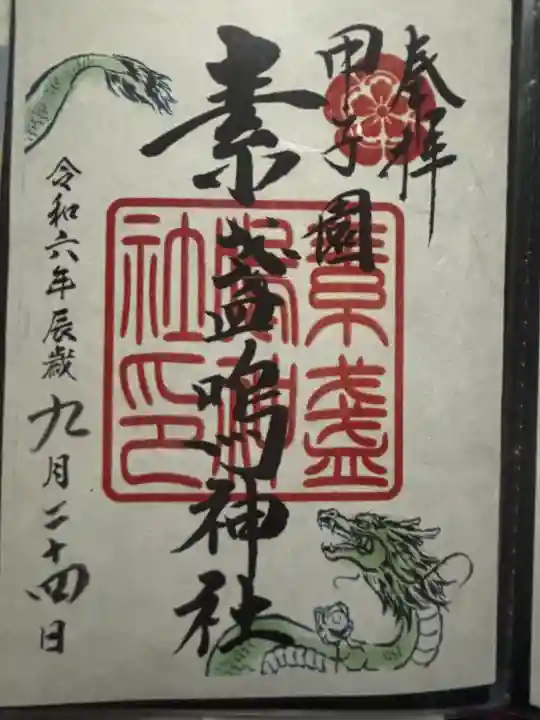 奉拝
甲子園
素盞嗚神社
令和六年辰歳九月二十四日
素盞
嗚神
社印